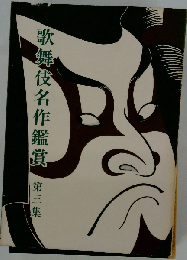 歌舞伎名作鑑賞
第三集